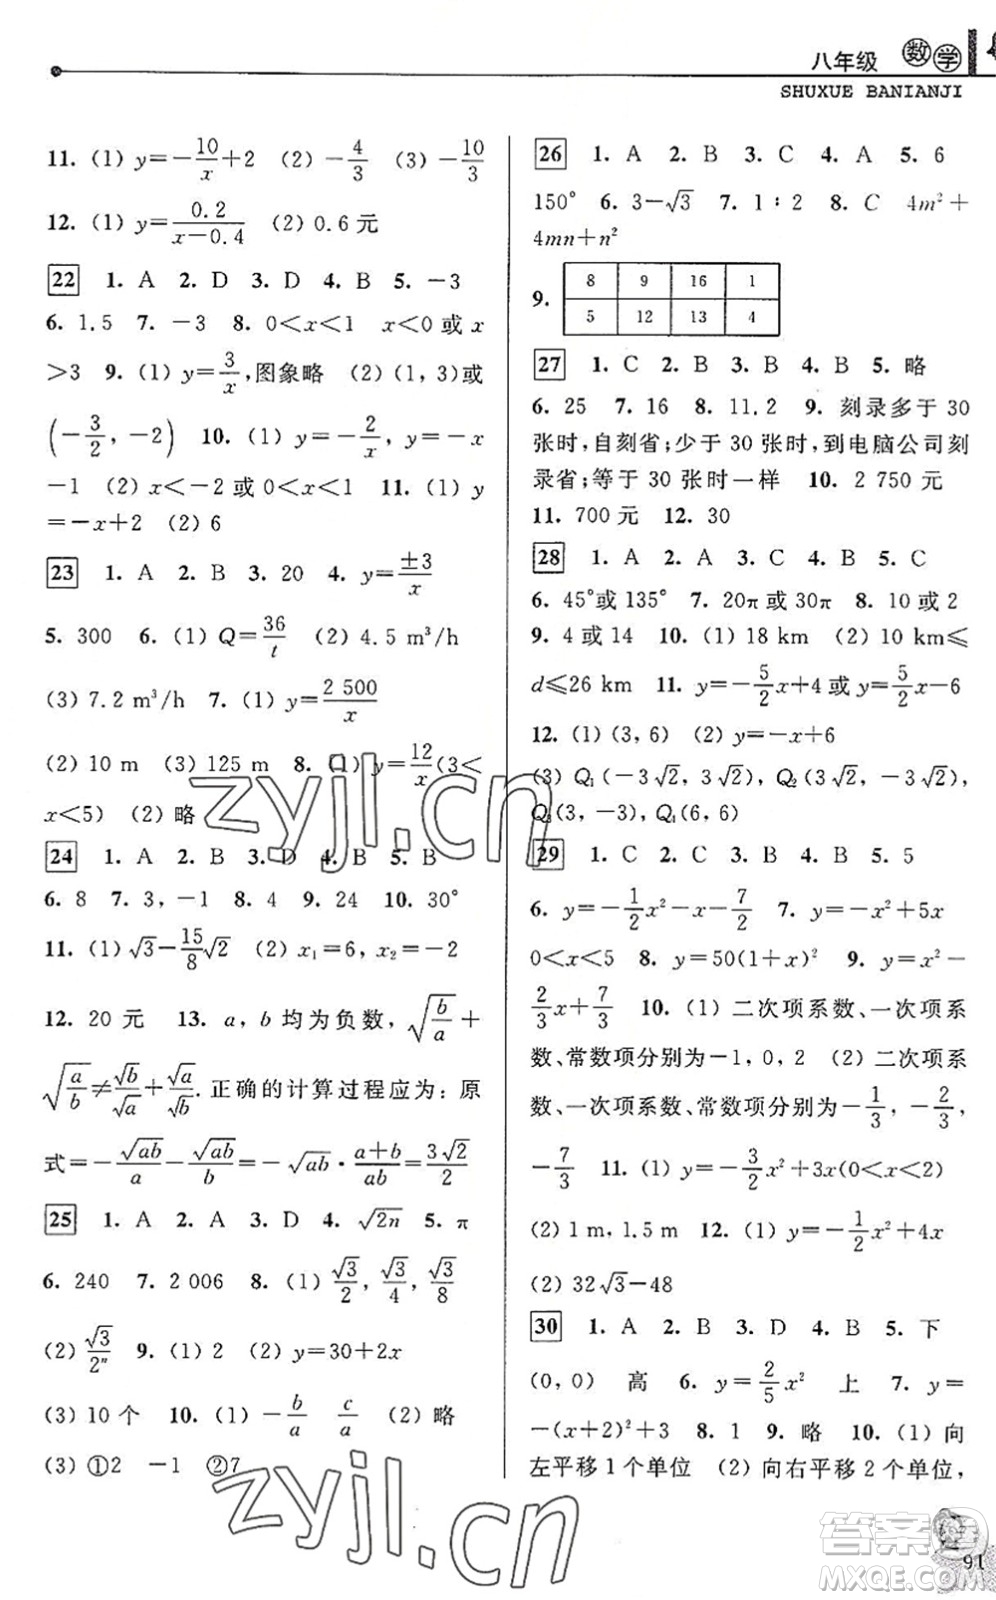 八年级 数学
SHUXUE BANIANJI
11. (1) y=-10/x+2 (2) -4/3 (3) -10/3
12. (1) y=0.2/(x-0.4) (2) 0.6 元
22 1. A 2. D 3. D 4. B 5. -3
6. 1.5 7. -3 8. 0<x<1 x<0 或 x
>3 9. (1) y=3/x,图象略 (2) (1, 3)或
(-3/2, -2) 10. (1) y=-2/x, y=-x
-1 (2) x<-2 或 0<x<1 11. (1) y
=-x+2 (2) 6
23 1. A 2. B 3. 20 4. y=±3/x
5. 300 6. (1) Q=36/t (2) 4.5 m³/h
(3) 7.2 m³/h 7. (1) y=2 500/x
(2) 10 m (3) 125 m 8. (1) y=12/x(3<
x<5) (2) 略
24 1. A 2. B 3. D 4. B 5. B
6. 8 7. 3, -1 8. 4 9. 24 10. 30°
11. (1) √3-15/8√2 (2) x₁=6, x₂=-2
12. 20 元 13. a, b 均为负数, √(b/a)+
√(a/b)≠√b/√a+√a/√b.正确的计算过程应为: 原
式=-√ab/a-√ab/b=-√ab·(a+b)/ab=3√2/2
25 1. A 2. A 3. D 4. √2n 5. π
6. 240 7. 2 006 8. (1) √3/2, √3/4, √3/8
(2) √3/2ⁿ 9. (1) 2 (2) y=30+2x
(3) 10 个 10. (1) -b/a c/a (2) 略
(3) ①2 -1 ②7
26 1. A 2. B 3. C 4. A 5. 6
150° 6. 3-√3 7. 1∶2 8. C 4m²+
4mn+n²
9. 8 9 16 1
5 12 13 4
27 1. C 2. B 3. B 4. B 5. 略
6. 25 7. 16 8. 11.2 9. 刻录多于 30
张时,自刻省;少于 30 张时,到电脑公司刻
录省;等于 30 张时一样 10. 2 750 元
11. 700 元 12. 30
28 1. A 2. A 3. C 4. B 5. C
6. 45°或 135° 7. 20π或 30π 8. 10 或 2
9. 4 或 14 10. (1) 18 km (2) 10 km≤
d≤26 km 11. y=-5/2x+4 或 y=5/2x-6
12. (1) (3, 6) (2) y=-x+6
(3) Q₁(-3√2, 3√2), Q₂(3√2, -3√2),
Q₃(3, -3), Q₄(6, 6)
29 1. C 2. C 3. B 4. B 5. 5
6. y=-1/2x²-x-7/2 7. y=-x²+5x
0<x<5 8. y=50(1+x)² 9. y=x²-
2/3x+7/3 10. (1) 二次项系数、一次项系
数、常数项分别为-1, 0, 2 (2) 二次项系
数、一次项系数、常数项分别为-1/3, -2/3,
-7/3 11. (1) y=-3/2x²+3x(0<x<2)
(2) 1 m, 1.5 m 12. (1) y=-1/2x²+4x
(2) 32√3-48
30 1. A 2. B 3. D 4. B 5. 下
(0, 0) 高 6. y=2/5x² 上 7. y=
-(x+2)²+3 8. 1 9. 略 10. (1) 向
左平移 1 个单位 (2) 向右平移 2 个单位,
91
zyjl.cn
zyjl.cn
答案圈
MXQE.COM